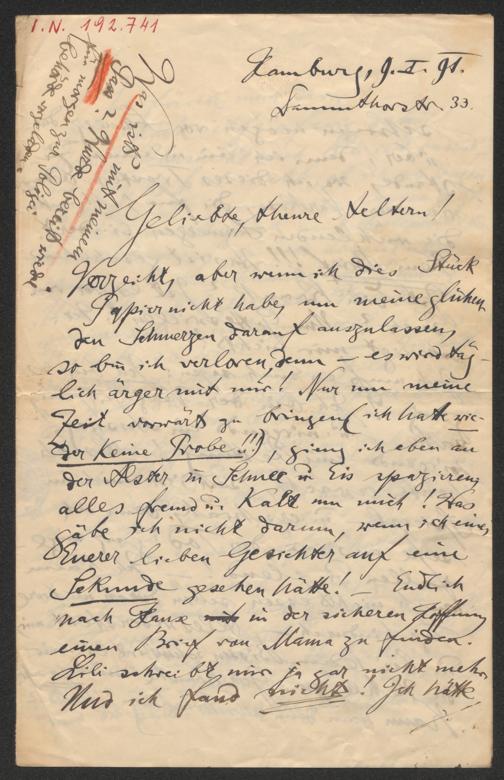 I. N. 192.741
Was ist's mit meinem
Pass?
für morgen zur Polizei
Hamburg, 9. I. 91.
Dammthorstr. 33.
Geliebte, theure Aeltern!
Verzeiht, aber wenn ich dies Stück
Papier nicht habe, um meine glühen
den Schmerzen darauf auszulassen,
so bin ich verloren, denn – es wird täg-
lich ärger mit mir! Nur um meine
Zeit vorwärt zu bringen (ich hatte wie-
der keine Probe!!), gieng ich eben an
der Alster in Schnee u Eis spazieren
alles fremd u. Kalt um mich! Was
gäbe ich nicht darum, wenn ich eines
Euerer lieben Gesichter auf eine
Sekunde gesehen hätte! – Endlich
nach Hause in der sicheren Hoffnung
einen Brief von Mama zu finden.
Lili schreibt mir ja gar nicht mehr.
Und ich fand nicht! Ich hätte